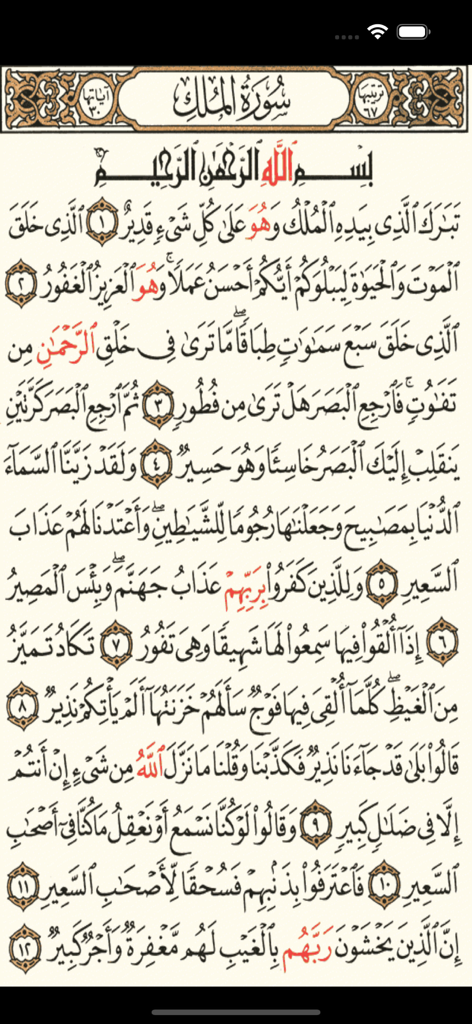 ترتيبها ٦٧ سُورَةُ المُلْكِ آياتها ٣٠
بِسْمِ ٱللَّهِ ٱلرَّحْمَٰنِ ٱلرَّحِيمِ
تَبَٰرَكَ ٱلَّذِي بِيَدِهِ ٱلْمُلْكُ وَهُوَ عَلَىٰ كُلِّ شَيْءٍ قَدِيرٌ ١ ٱلَّذِي خَلَقَ
ٱلْمَوْتَ وَٱلْحَيَوٰةَ لِيَبْلُوَكُمْ أَيُّكُمْ أَحْسَنُ عَمَلًا ۚ وَهُوَ ٱلْعَزِيزُ ٱلْغَفُورُ ٢
ٱلَّذِي خَلَقَ سَبْعَ سَمَٰوَٰتٍ طِبَاقًا ۖ مَّا تَرَىٰ فِي خَلْقِ ٱلرَّحْمَٰنِ مِن
تَفَٰوُتٍ ۖ فَٱرْجِعِ ٱلْبَصَرَ هَلْ تَرَىٰ مِن فُطُورٍ ٣ ثُمَّ ٱرْجِعِ ٱلْبَصَرَ كَرَّتَيْنِ
يَنقَلِبْ إِلَيْكَ ٱلْبَصَرُ خَاسِئًا وَهُوَ حَسِيرٌ ٤ وَلَقَدْ زَيَّنَّا ٱلسَّمَآءَ
ٱلدُّنْيَا بِمَصَٰبِيحَ وَجَعَلْنَٰهَا رُجُومًا لِّلشَّيَٰطِينِ ۖ وَأَعْتَدْنَا لَهُمْ عَذَابَ
ٱلسَّعِيرِ ٥ وَلِلَّذِينَ كَفَرُوا۟ بِرَبِّهِمْ عَذَابُ جَهَنَّمَ ۖ وَبِئْسَ ٱلْمَصِيرُ
٦ إِذَآ أُلْقُوا۟ فِيهَا سَمِعُوا۟ لَهَا شَهِيقًا وَهِيَ تَفُورُ ٧ تَكَادُ تَمَيَّزُ
مِنَ ٱلْغَيْظِ ۖ كُلَّمَآ أُلْقِيَ فِيهَا فَوْجٌ سَأَلَهُمْ خَزَنَتُهَآ أَلَمْ يَأْتِكُمْ نَذِيرٌ ٨
قَالُوا۟ بَلَىٰ قَدْ جَآءَنَا نَذِيرٌ فَكَذَّبْنَا وَقُلْنَا مَا نَزَّلَ ٱللَّهُ مِن شَيْءٍ إِنْ أَنتُمْ
إِلَّا فِي ضَلَٰلٍ كَبِيرٍ ٩ وَقَالُوا۟ لَوْ كُنَّا نَسْمَعُ أَوْ نَعْقِلُ مَا كُنَّا فِيٓ أَصْحَٰبِ
ٱلسَّعِيرِ ١٠ فَٱعْتَرَفُوا۟ بِذَنۢبِهِمْ فَسُحْقًا لِّأَصْحَٰبِ ٱلسَّعِيرِ ١١
إِنَّ ٱلَّذِينَ يَخْشَوْنَ رَبَّهُم بِٱلْغَيْبِ لَهُم مَّغْفِرَةٌ وَأَجْرٌ كَبِيرٌ ١٢